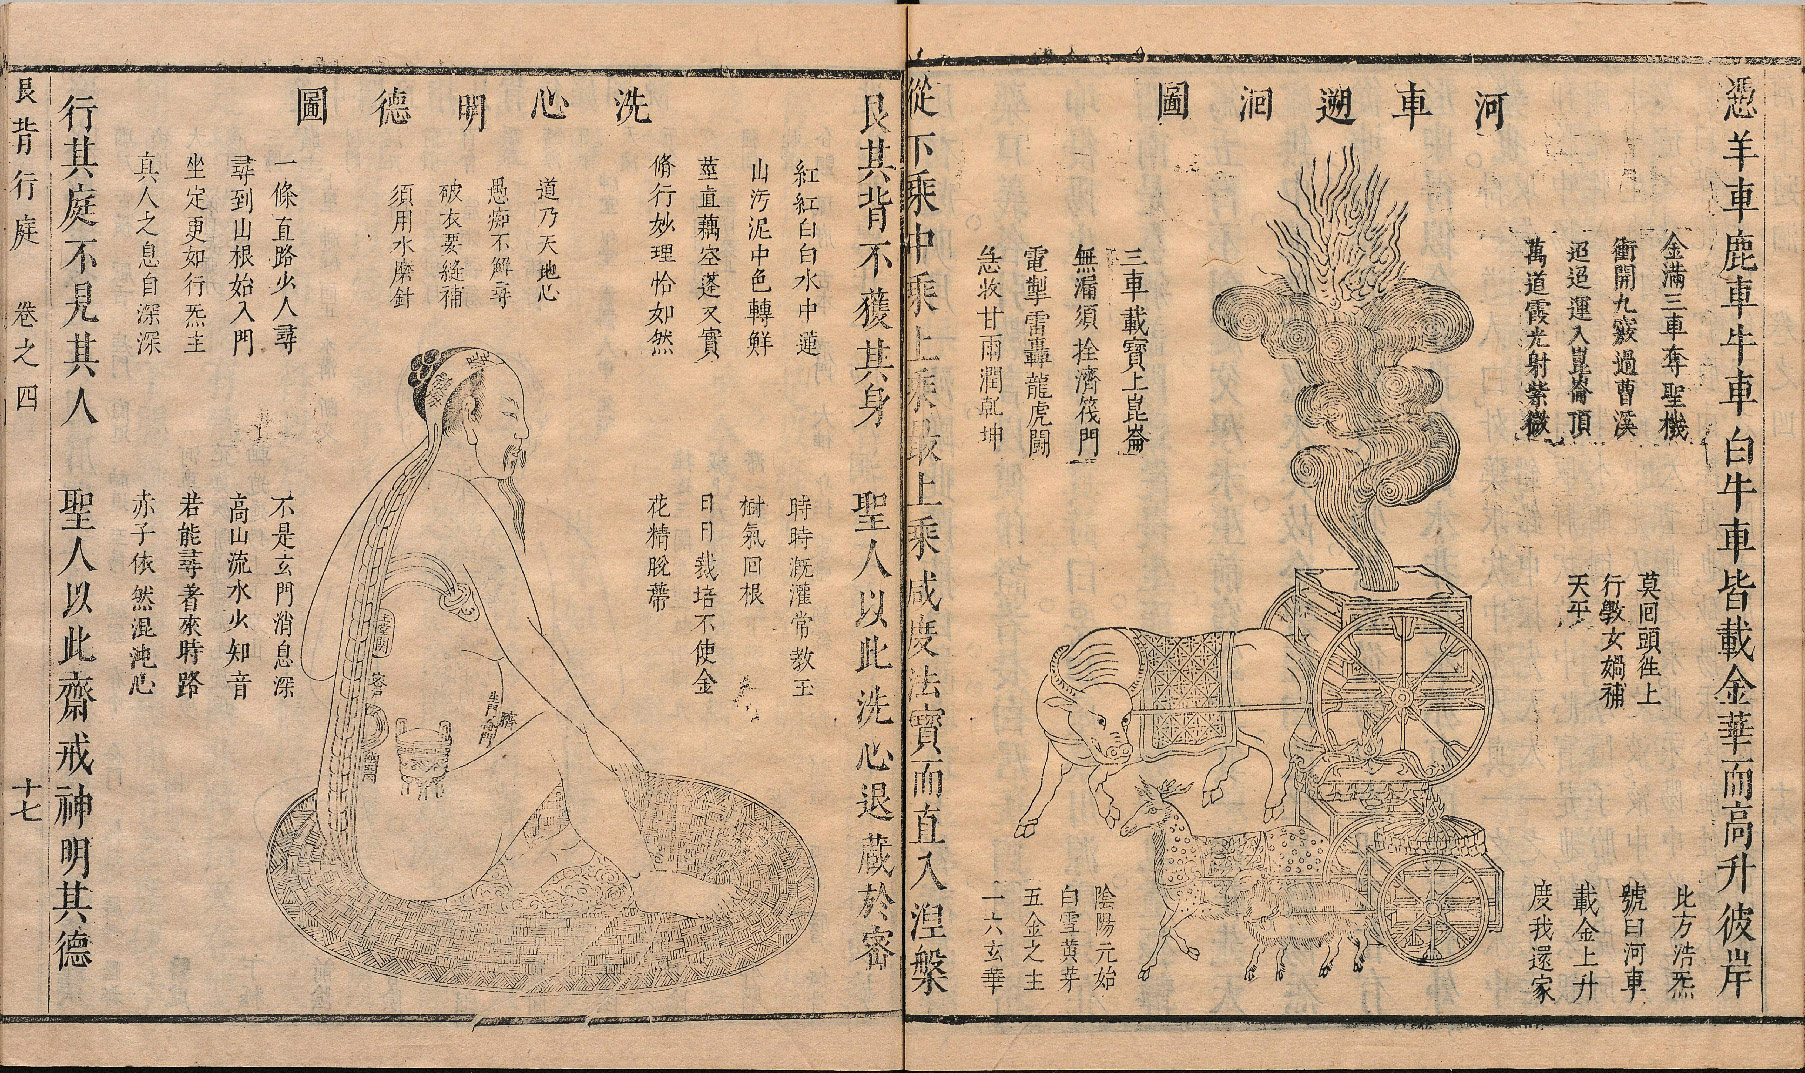 河車遡洄圖
憑羊車鹿車牛車白牛車皆載金華而高升彼岸
金滿三車奪聖機
衝開九竅過曹溪
迢迢運入崑崙頂
萬道霞光射紫微
莫回頭徃上
行教女媧補
天平
此方浩炁
號曰河車
載金上升
度我還家
三車載寶上崑崙
無漏須拴濟筏門
電掣雷轟龍虎鬭
急收甘雨潤乾坤
陰陽元始
白雪黄芽
五金之主
一六玄華
從下乘中乘上乘最上乘咸慶法寶而直入涅槃
洗心明德圖
艮其背不獲其身 聖人以此洗心退藏於密
紅紅白白水中蓮
山汚泥中色轉鮮
莖直藕空蓬又實
脩行妙理恰如然
道乃天地心
愚痴不解尋
破衣要縫補
須用水磨針
一條直路少人尋
尋到山根始入門
坐定更如行炁主
真人之息自深深
時時溉灌常教玉
樹氣回根
日日栽培不使金
花精脫蔕
不是玄門消息深
高山流水少知音
若能尋著來時路
赤子依然混沌心
密戶
臍
生門
行其庭不見其人 聖人以此齋戒神明其德
艮背行庭 卷之四 十七